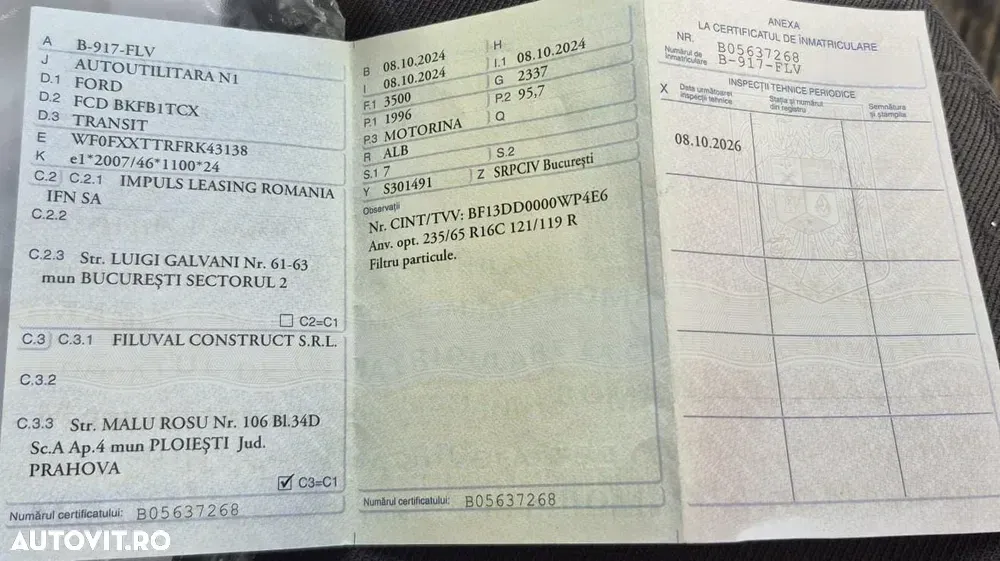 A B-917-FLV
J AUTOUTILITARA N1
D.1 FORD
D.2 FCD BKFB1TCX
D.3 TRANSIT
E WF0FXXTTRFRK43138
K e1*2007/46*1100*24
C.2 C.2.1 IMPULS LEASING ROMANIA
IFN SA
C.2.2
C.2.3 Str. LUIGI GALVANI Nr. 61-63
mun BUCUREȘTI SECTORUL 2
C2=C1
C.3 C.3.1 FILUVAL CONSTRUCT S.R.L.
C.3.2
C.3.3 Str. MALU ROSU Nr. 106 Bl.34D
Sc.A Ap.4 mun PLOIEȘTI Jud.
PRAHOVA
C3=C1
Numărul certificatului: B05637268
B 08.10.2024 H
I 08.10.2024 I.1 08.10.2024
F.1 3500 G 2337
P.1 1996 P.2 95,7
P.3 MOTORINA Q
R ALB
S.1 7 S.2
Y S301491 Z SRPCIV București
Observații
Nr. CINT/TVV: BF13DD0000WP4E6
Anv. opt. 235/65 R16C 121/119 R
Filtru particule.
Numărul certificatului: B05637268
ANEXA
LA CERTIFICATUL DE ÎNMATRICULARE
NR. B05637268
Numărul de înmatriculare B-917-FLV
INSPECȚII TEHNICE PERIODICE
X Data următoarei inspecții tehnice
Stația și numărul din registru
Semnătura și ștampila
08.10.2026
AUTOVIT.RO